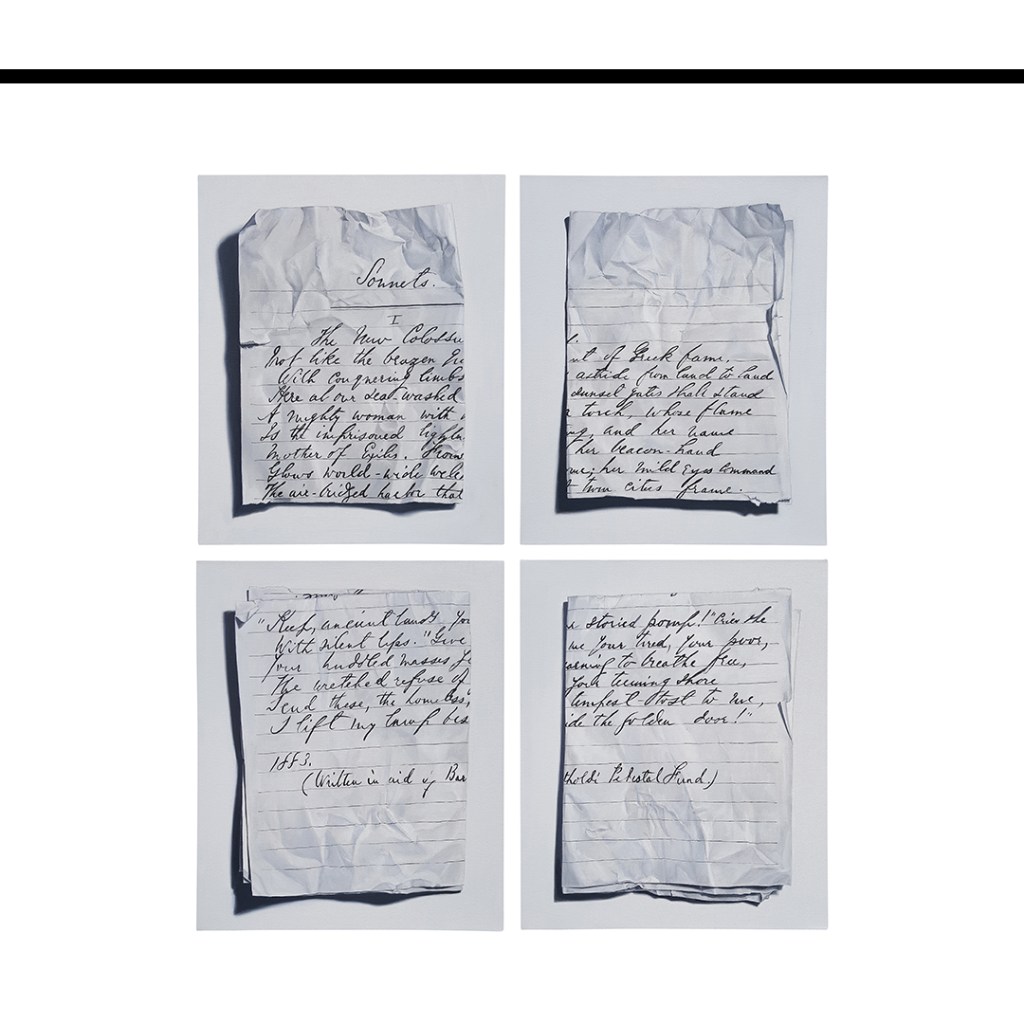 Sonnets.
I
The New Colossu
Not like the brazen Gi nt of Greek fame,
With conquering limbs astride from land to land
Here at our sea-washed sunset gates shall stand
A mighty woman with a torch, whose flame
Is the imprisoned lightn ng, and her name
Mother of Exiles. From her beacon-hand
Glows world-wide welc me; her mild eyes command
The air-bridged harbor that twin cities frame.
"Keep, ancient lands you storied pomp!" cries she
With silent lips. "Give me your tired, your poor,
Your huddled masses ye arning to breathe free,
The wretched refuse of your teeming shore
Send these, the homeless, tempest-tost to me,
I lift my lamp bes ide the golden door!"
1883.
(Written in aid of Bar tholdi Pedestal Fund.)